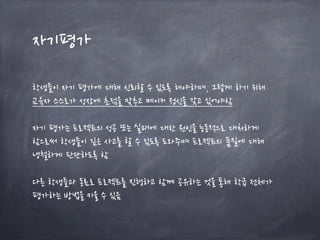 자기평가
학생들이 자기 평가에 대해 신뢰할 수 있도록 해야하며, 그렇게 하기 위해
교육자 스스로가 성장에 초점을 맞추고 메이커 정신을 갖고 있어야함
자기 평가는 프로젝트의 성공 또는 실패에 대한 원인을 능동적으로 대처하게
함으로써 학생들이 깊은 사고를 할 수 있도록 도와주며 프로젝트의 품질에 대해
냉철하게 판단하도록 함
다른 학생들과 동료로 프로젝트를 진행하고 함께 공유하는 것을 통해 학급 전체가
평가하는 방법을 키울 수 있음